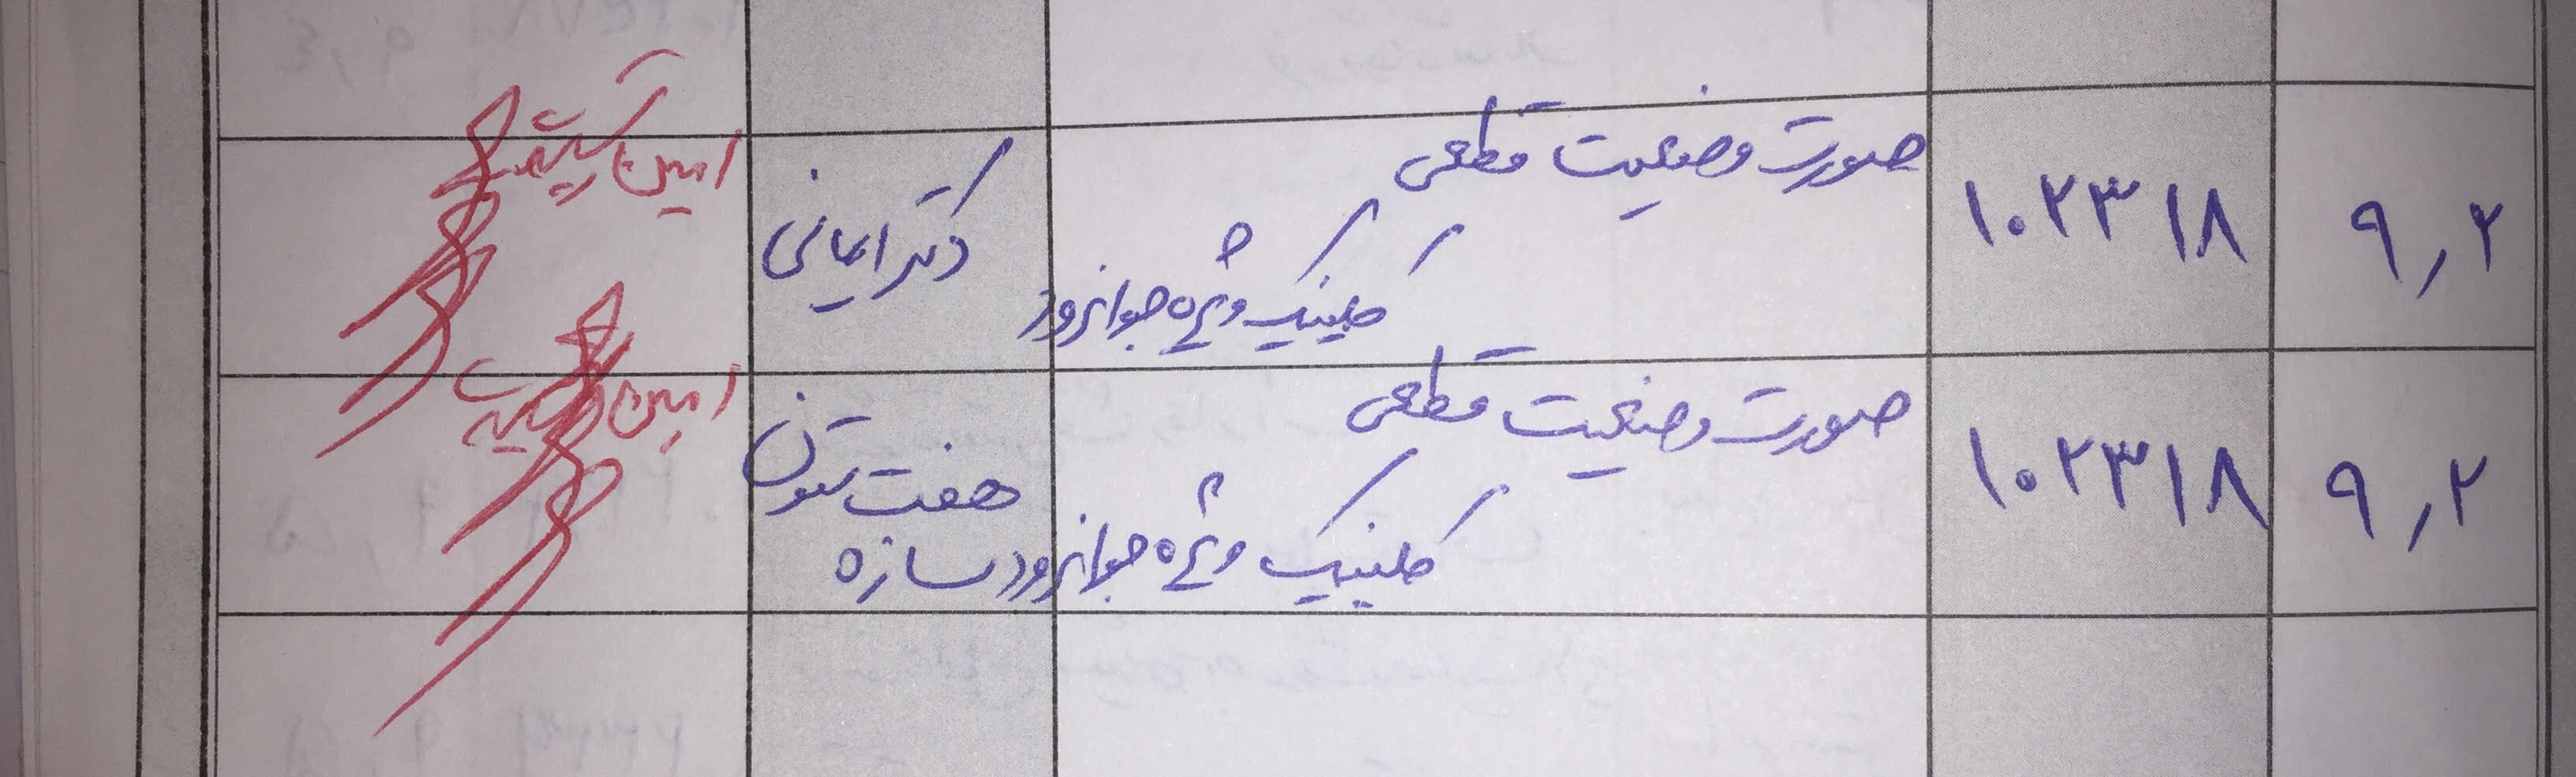 ۹٫۲ ۱۰۲۳۱۸ صورت وضعیت قطعی
کلینیک ویژه جوانرود دکتر ایمانی امین
۹٫۲ ۱۰۲۳۱۸ صورت وضعیت قطعی
کلینیک ویژه جوانرود هفت ستون امین
سازه